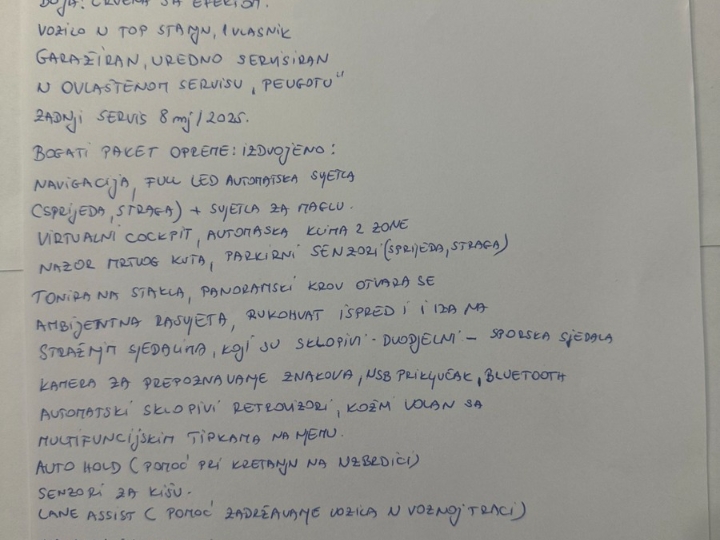 BOJA: CRVENA SA EFEKTOM.
VOZILO U TOP STANJU, 1 VLASNIK
GARAŽIRAN, UREDNO SERVISIRAN
U OVLAŠTENOM SERVISU „PEUGOTU"
ZADNJI SERVIS 8 mj/2025.
BOGATI PAKET OPREME: IZDVOJENO:
NAVIGACIJA, FULL LED AUTOMATSKA SVJETLA
(SPRIJEDA, STRAGA) + SVJETLA ZA MAGLU.
VIRTUALNI COCKPIT, AUTOMASKA KLIMA 2 ZONE
NAZOR MRTVOG KUTA, PARKIRNI SENZORI (SPRIJEDA, STRAGA)
TONIRANA STAKLA, PANORAMSKI KROV OTVARA SE
AMBIJENTNA RASVJETA, RUKOHVAT ISPRED I I IZA NA
STRAŽNJIM SJEDALIMA, KOJI SU SKLOPIVI - DUODJELNI - SPORSKA SJEDALA
KAMERA ZA PREPOZNAVANJE ZNAKOVA, USB PRIKLJUČAK, BLUETOOTH
AUTOMATSKI SKLOPIVI RETROVIZORI, KOŽNI VOLAN SA
MULTIFUNCIJSKIM TIPKAMA NAMENU.
AUTO HOLD (POMOĆ PRI KRETANJU NA UZBRDICI)
SENZORI ZA KIŠU.
LANE ASSIST ( POMOĆ ZADRŽAVANJE VOZILA U VOZNOJ TRACI)